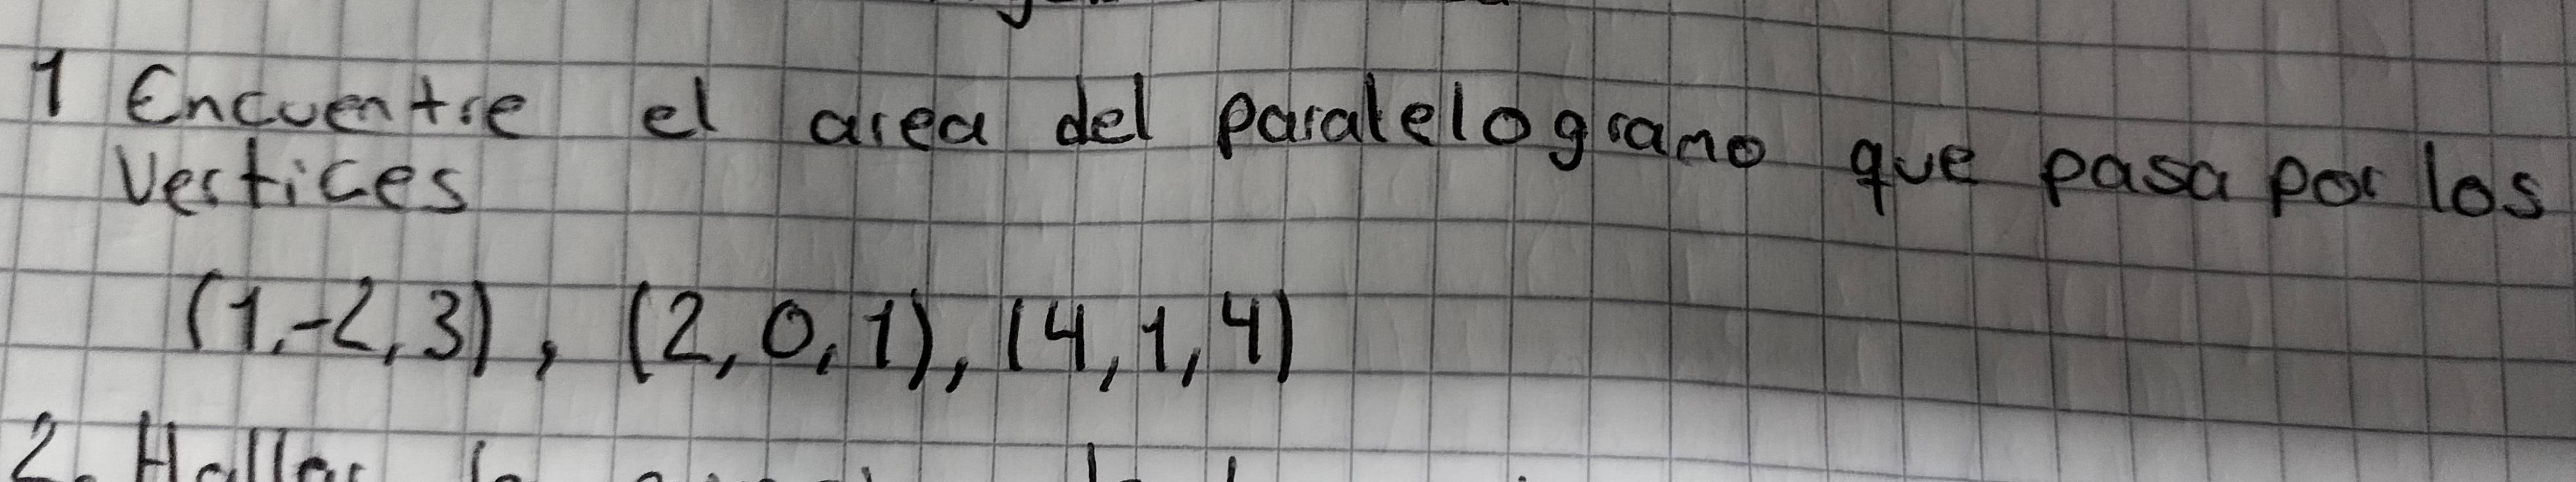 1 Encuentre el area del paralelogramo que pasa por los
Vertices
(1,-2,3), (2,0,1), (4,1,4)
2. Hallar